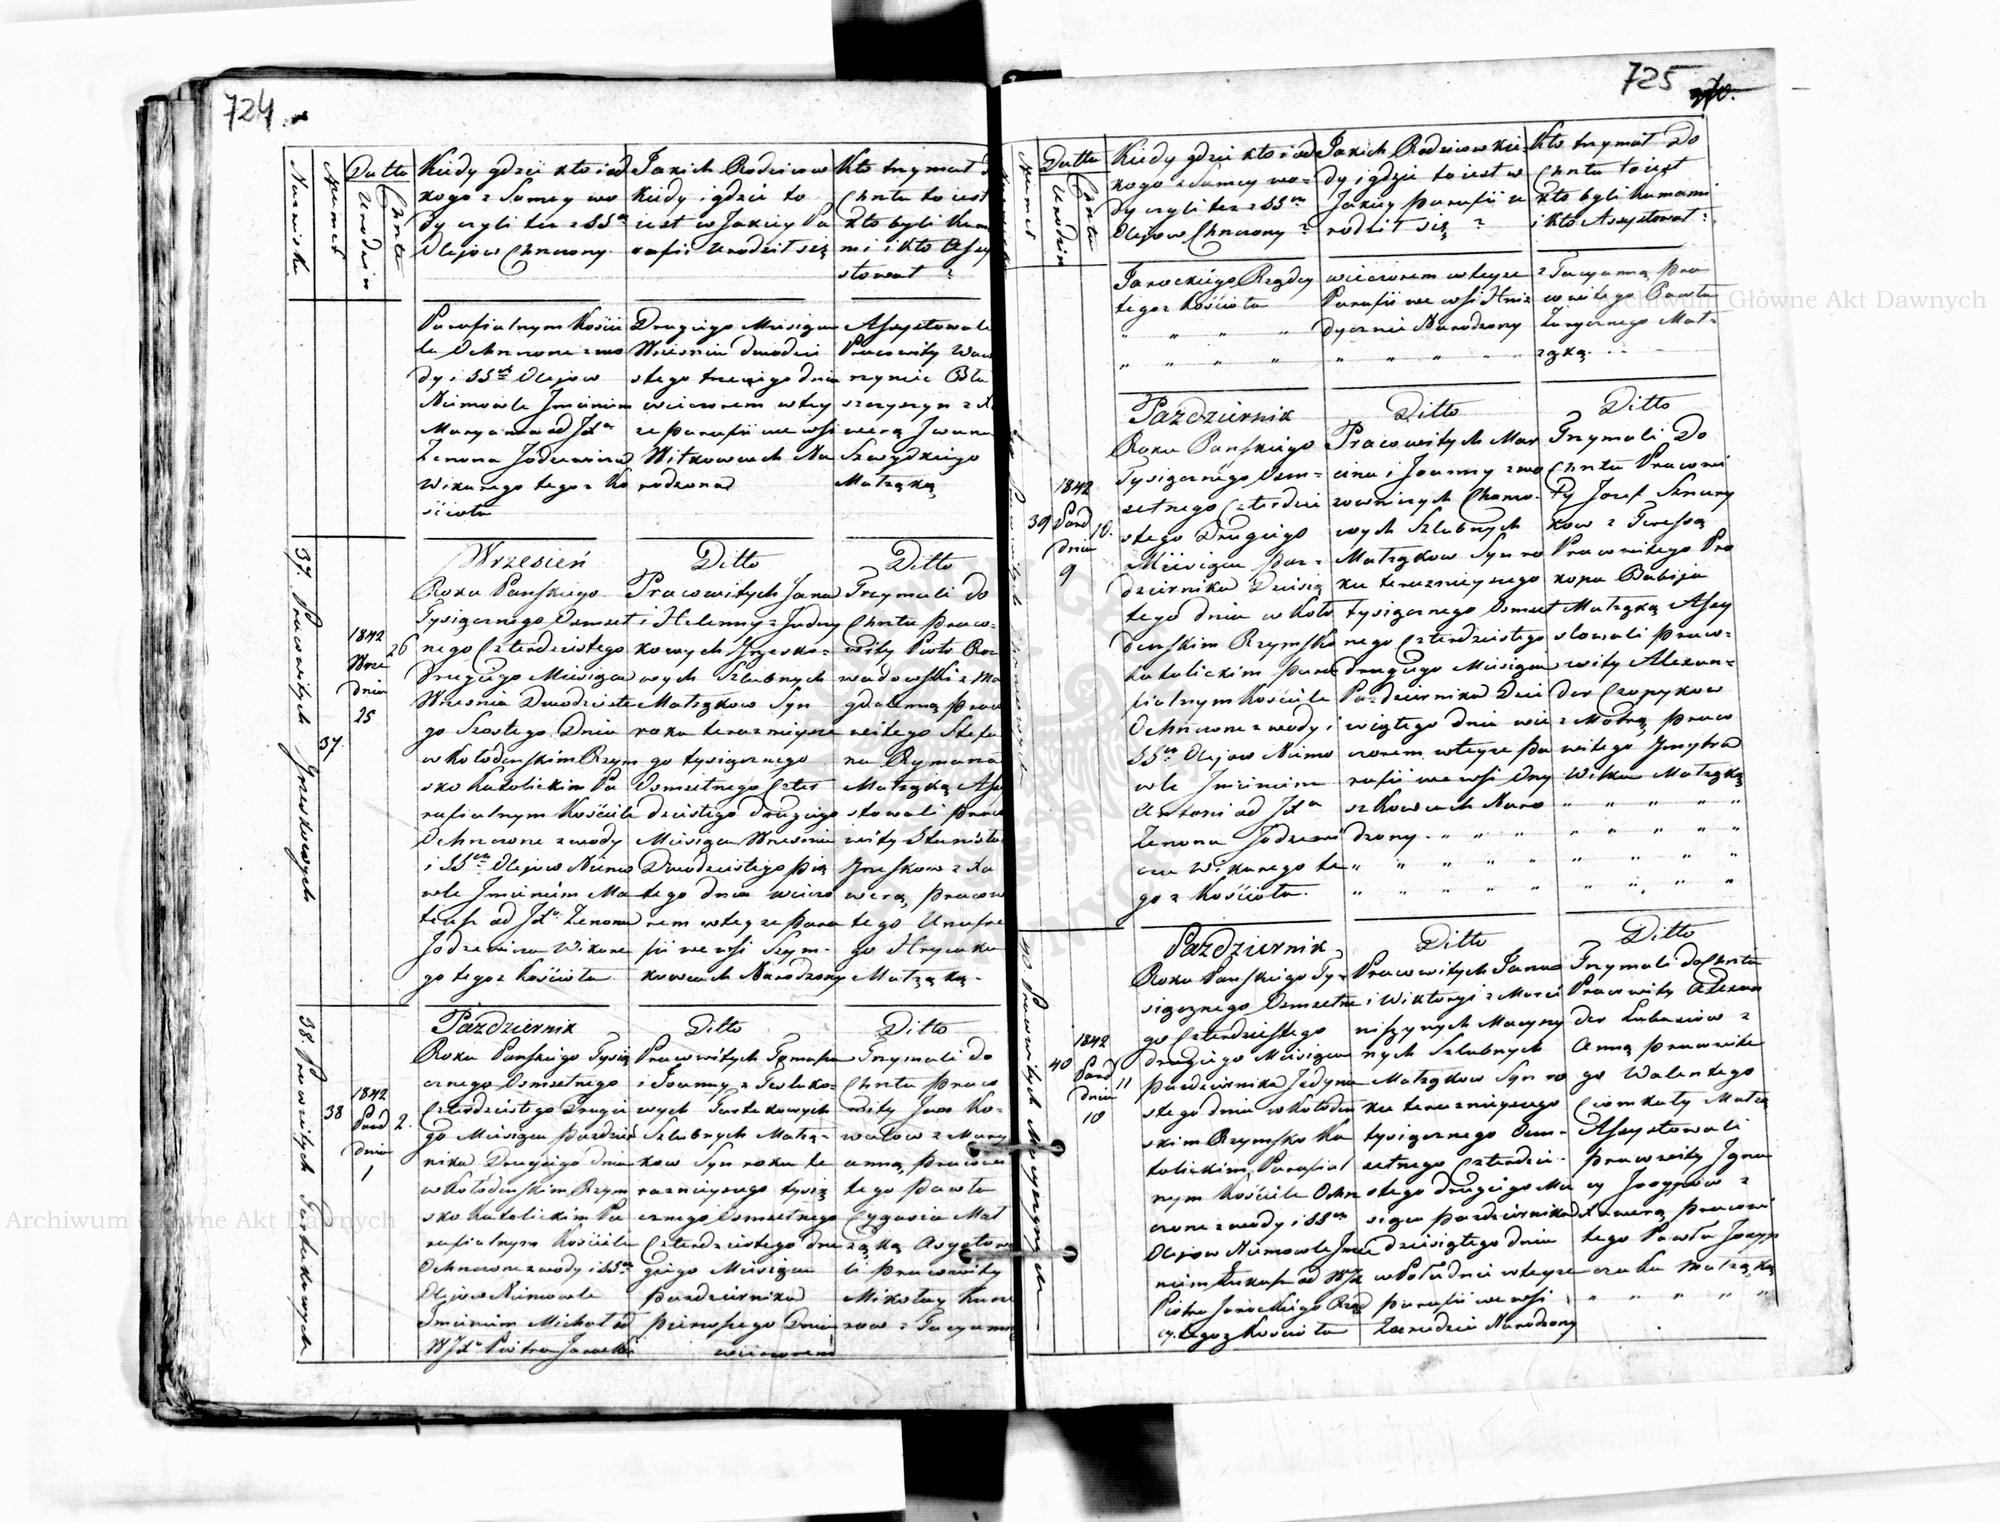 724.
Nazwisko
Numer
Datta
Urodzin
Chrztu
Kiedy gdzie kto i od
kogo z Samey wo
dy czyli tez z SS^m
Olejow Chrzczony
Jakich Rodzicow
kiedy i gdzie to
iest w Jakiey Pa
rafii Urodził się
Kto trzymał
Chrztu to iest
kto byli Kum
mi i kto Assy
stował ?
Parafialnym Kościе
le Ochrzczone z wo
dy i SS^ch Olejow
Niemowle Jmieniem
Maryanna od JX^a
Zenona Jodzewicza
Wikarego tegoz Ko
ścioła
Drugiego Miesiąca
Wrzesnia dwodzie
stego trzeciego dnia
wieczorem w tey
ze parafii we wsi
Witkowcach Na
rodzona
Assystowali
Pracowity Waw
rzyniec Bła
szczyszyn z Xa
werą Jwana
Szwydkiego
Małżąką
37. Pracowitych Grzeskowych
37
1842
Wrze
dnia
25
26
Wrzesień
Roku Pańskiego
Tysiącznego Osmset
nego Czterdziestego
Drugiego Miesiąca
Wrzesnia Dwodzieste
go Szostego Dnia
w Kołodenskim Rzym
sko Katolickim Pa
rafialnym Kościele
Ochrzczone z wody
i SS^ch Olejow Niemo
wle Jmieniem Ma
teusz od JX^a Zenona
Jodzewicza Wikare
go tegoz Kościoła
Ditto
Pracowitych Jana
i Helenny z Judny
kowych Grzesko-
wych Szlubnych
Małżąkow Syn
roku teraznieysze
go tysiącznego
Osmsetnego Czter
dziestego drugiego
Miesiąca Wrzesnia
Dwodziestego pią
tego dnia wieczo
rem w teyze para
fii we wsi Szym-
kowcach Narodzony
Ditto
Trzymali do
Chrztu praco-
wity Piotr
z Ma
gdalenną praco
witego Stefa
na Rymana
Małżąką Assy
stowali praco
wity Stanisła
Grzeskow z Xa
werą pracowi
tego Onufre
go Hrycaka
Małżąką.
38. Pracowitych Gustekowych
38
1842
Pazd
dnia
1
2.
Październik
Roku Pańskiego Tysią
cznego Osmsetnego
Czterdziestego Drugie
go Miesiąca pazdzier
nika Drugiego dnia
w Kołodenskim Rzym
sko Katolickim Pa
rafialnym Kościele
Ochrzczone z wody i SS^ch
Olejow Niemowle
Jmieniem Michał od
WJX^a Piotra Jarocki
Ditto
Pracowitych Tomasza
i Joanny z
wych Gustekowych
Szlubnych Małżą-
kow Syn roku te
raznieyszego tysią
cznego Osmsetnego
Czterdziestego dru
giego Miesiąca
pazdziernika
pierwszego Dnia
wieczorem
Ditto
Trzymali do
Chrztu praco
wity Jan Ko-
walow z Mary
anną pracowi
tego Pawła
Cygania Mał
żąką Asysstowa
li pracowity
Mikołay
row z Tacyanną
725
Numer
Datta
Urodzin
Chrztu
Kiedy gdzie kto i od
kogo z Samey wo-
dy czyli tez z SS^m
Olejow Chrzczony ?
Jakich Rodzicow kie
dy i gdzie to iest w
Jakiey parafii u
rodził się ?
Kto trzymał do
Chrztu to iest
kto byli kumami
i kto Assystował ?
Jarockiego Rządcy
tegoz Kościoła
" " " "
" " " "
wieczorem w teyze
Parafii we wsi Hniz
dycznie Narodzony
" " " "
z Tacyanną pra
cowitego Pawła
Zarycznego Mał-
żąką.
39
1842
Pazd
dnia
9
10.
Październik
Roku Pańskiego
Tysiącznego Osm-
setnego Czterdzie
stego Drugiego
Miesiąca paz-
dziernika Dziesią
tego dnia w Koło
denskim Rzymsko
katolickim para
fialnym Kościele
Ochrzczone z wody i
SS^ch Olejow Niemo
wle Jmieniem
Antoni od JX^a
Zenona Jodzewi
cza Wikarego te
goz Kościoła.
Ditto
Pracowitych Mar
cina i Joanny z wo
zowniczych Chomo-
wych Szlubnych
Małżąkow Syn ro
ku teraznieyszego
tysiącznego Osmset
nego Czterdziestego
drugiego Miesiąca
Pazdziernika Dzie
wiątego dnia wie
czorem w teyze pa
rafii we wsi Dny
szkowcach Naro
dzony. " " "
" " " " "
" " " " "
Ditto
Trzymali do
Chrztu Pracowi
ty Jozef Sznury
kow z Teressą
Pracowitego Pro
kopa Babija
Małżąką Assy
stowali praco-
wity Alexan-
der Czopykow
z Motrą praco
witego Gmytra
Wilka Małżąką
" " " "
" " " "
" " " "
" " " "
40 Pracowitych Macyznych
40
1842
Pazd
dnia
10
11
Październik
Roku Pańskiego Ty-
siącznego Osmsetne
go Czterdziestego
drugiego Miesiąca
Pazdziernika Jedyna
stego dnia w Kołoden
skim Rzymsko Ka
tolickim Parafial
nym Kościele Ochrz
czone z wody i SS^ch
Olejow Niemowle Jmie
niem Łukasz od WJX
Piotra Jarockiego Rząd
cy tegoz Kościoła
Ditto
Pracowitych Jana
i Wiktoryi z Marci
niszynych Macyzny
nych Szlubnych
Małżąkow Syn ro
ku teraznieyszego
tysiącznego Osm-
setnego Czterdzie-
stego drugiego Mie
siąca pazdziernika
dziesiątego dnia
w Południe w teyze
parafii we wsi
Zarudziu Narodzony
Ditto
Trzymali do Chrztu
Pracowity Alexan
der Łubasiow z
Anną pracowite
go Walentego
Ciomkały Małżą
Assystowali
pracowity Igna
cy Joszypow z
Xawerą pracowi
tego Pawła Joszyp
czuka Małżąką
" " " " "
Archiwum Główne Akt Dawnych
Archiwum Główne Akt Dawnych